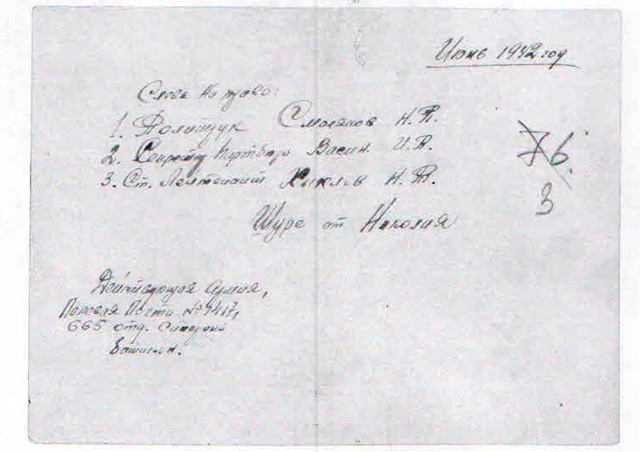 Июнь 1942 год
Слева Направо:
1. Политрук Смоляков Н.П.
2. Секретар Партбюро Васин И.П.
3. Ст. Лейтенант Н.П.
76.
3
Шуре от Николая
Действующая Армия,
Полевая Почта №
665 отд. Саперный
Батальон.